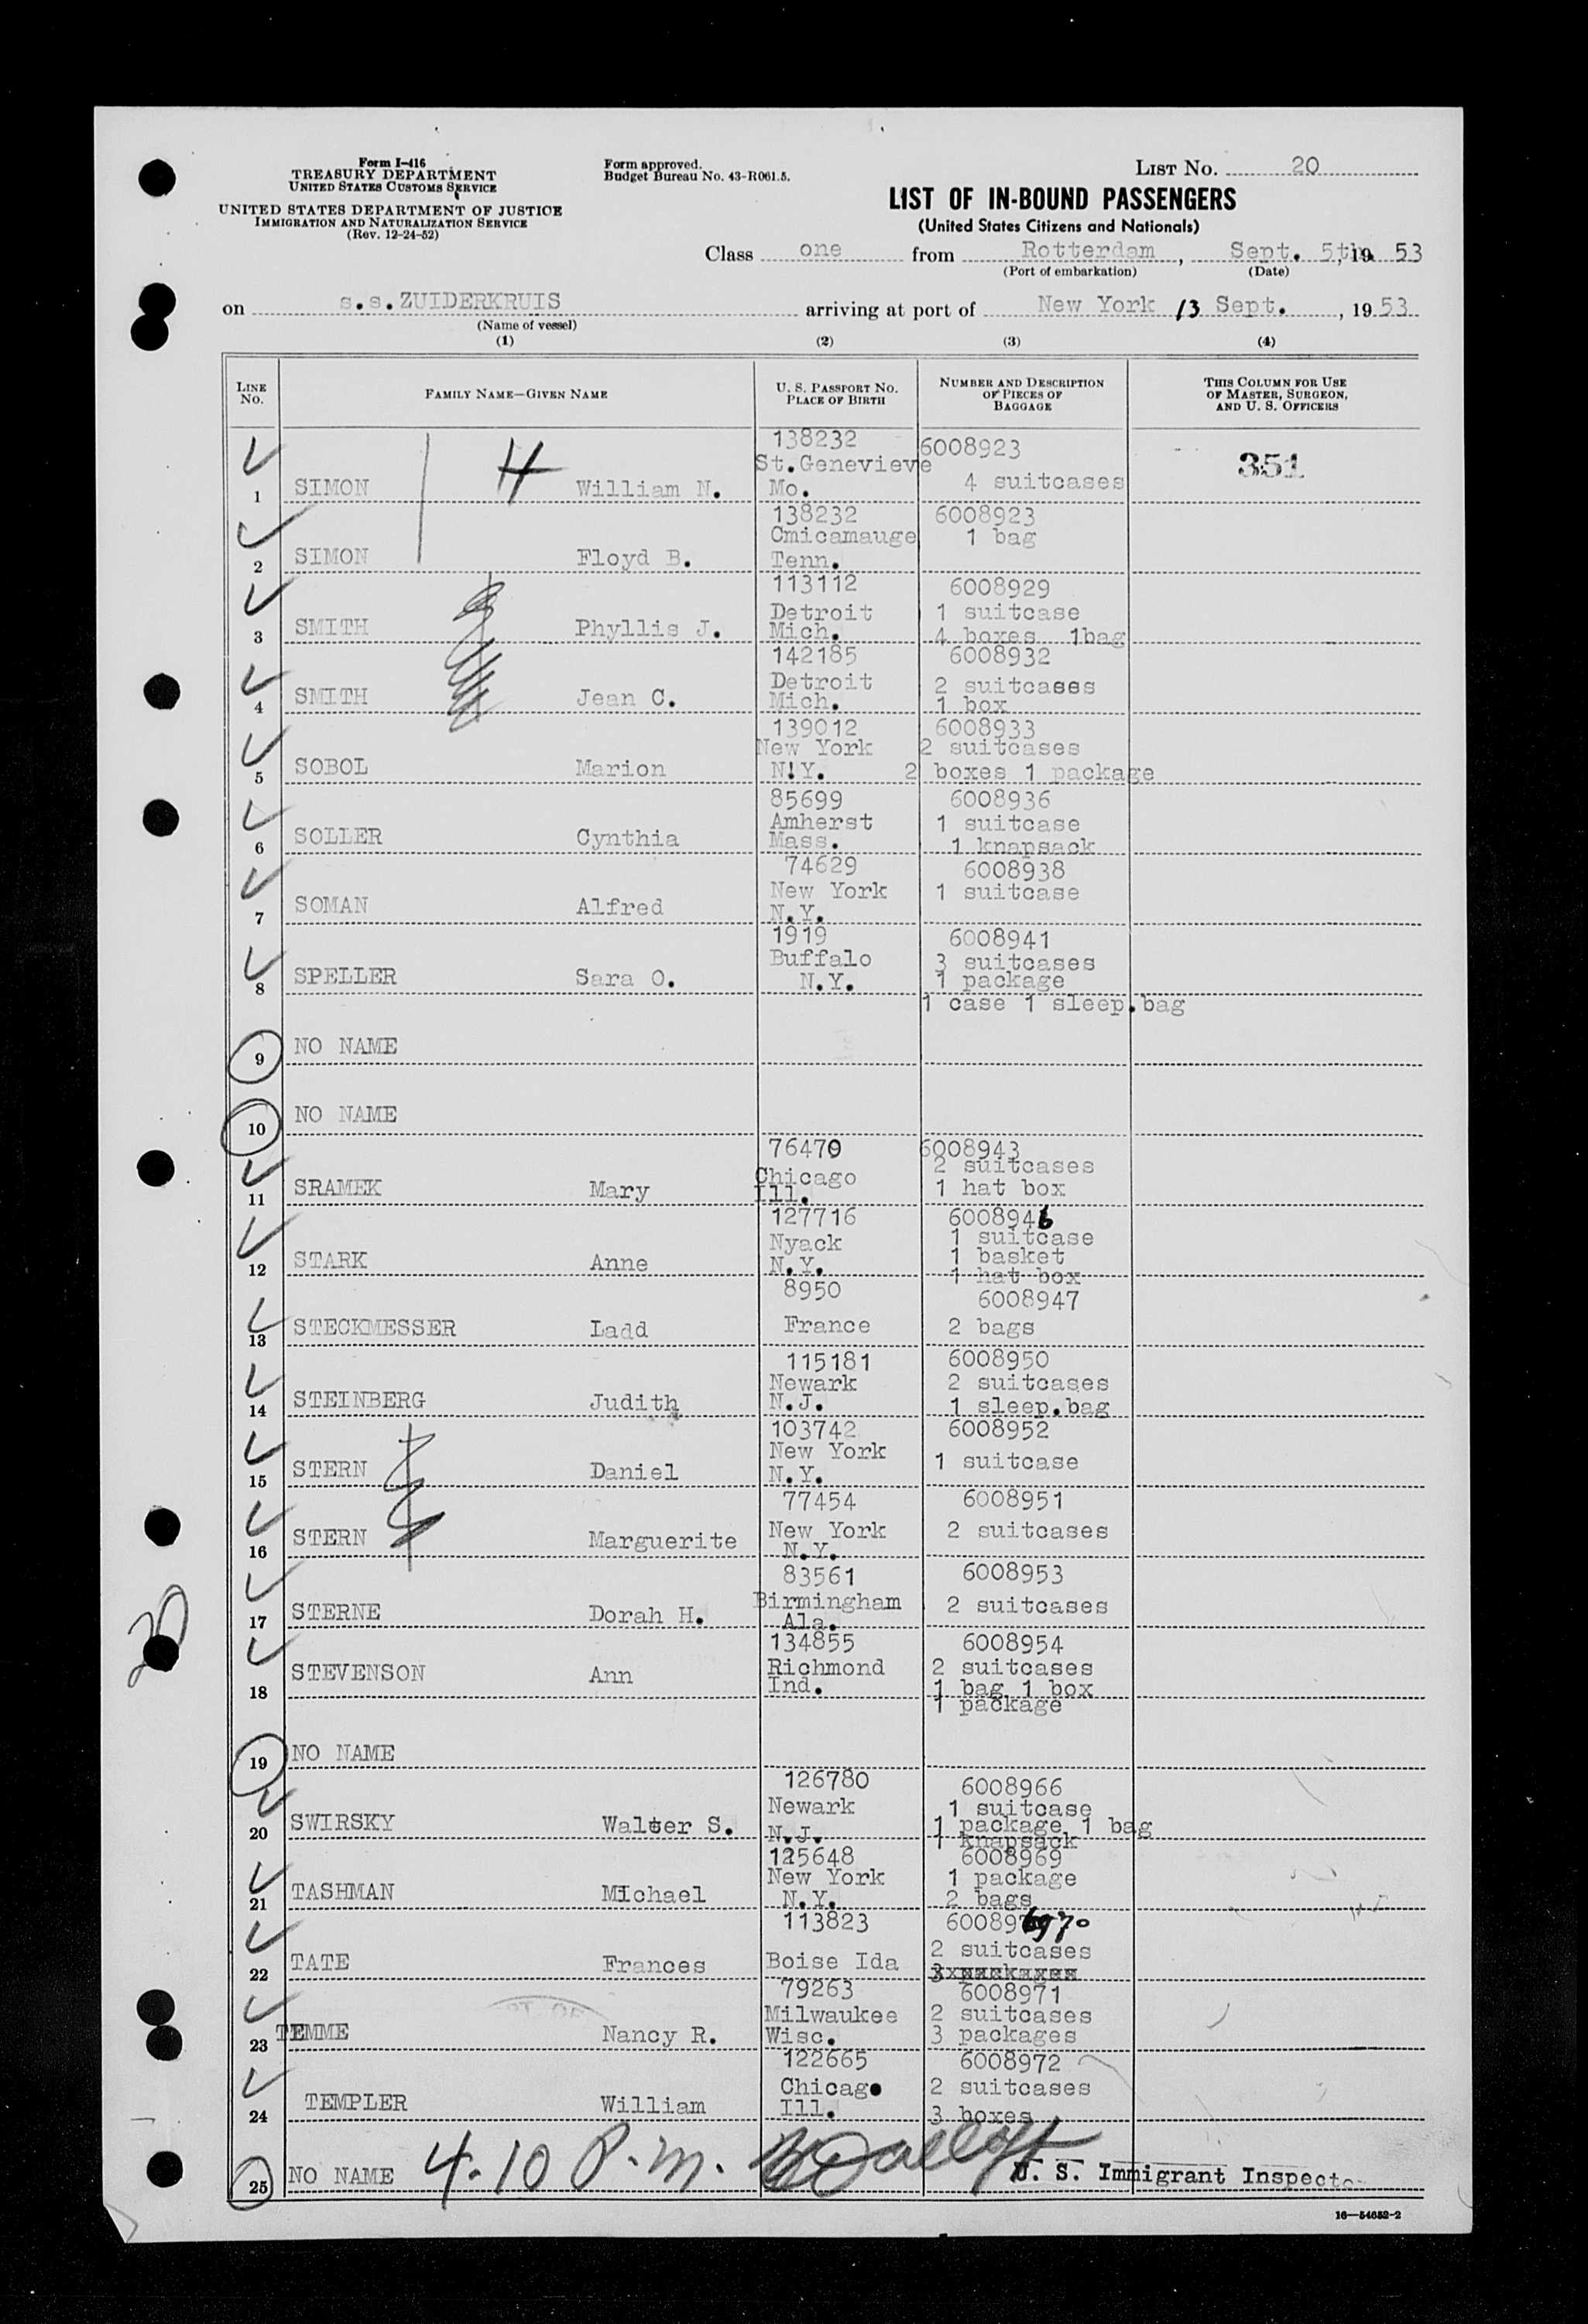 Form I-416
TREASURY DEPARTMENT
UNITED STATES CUSTOMS SERVICE
UNITED STATES DEPARTMENT OF JUSTICE
IMMIGRATION AND NATURALIZATION SERVICE
(Rev. 12-24-52)
Form approved.
Budget Bureau No. 43-R061.5.
LIST NO. 20
LIST OF IN-BOUND PASSENGERS
(United States Citizens and Nationals)
Class one from Rotterdam, Sept. 5th, 19 53
(Port of embarkation) (Date)
on s.s. ZUIDERKRUIS arriving at port of New York 13 Sept., 19 53
(Name of vessel)
(1) (2) (3) (4)
LINE NO. FAMILY NAME—GIVEN NAME U. S. PASSPORT NO. PLACE OF BIRTH NUMBER AND DESCRIPTION OF PIECES OF BAGGAGE THIS COLUMN FOR USE OF MASTER, SURGEON, AND U. S. OFFICERS
138232 6008923
St.Genevieve 351
1 SIMON H William N. Mo. 4 suitcases
138232 6008923
Cmicamauge 1 bag
2 SIMON Floyd B. Tenn.
113112 6008929
Detroit 1 suitcase
3 SMITH Phyllis J. Mich. 4 boxes 1bag
142185 6008932
Detroit 2 suitcases
4 SMITH Jean C. Mich. 1 box
139012 6008933
New York 2 suitcases
5 SOBOL Marion N!Y. 2 boxes 1 package
85699 6008936
Amherst 1 suitcase
6 SOLLER Cynthia Mass. 1 knapsack
74629 6008938
New York 1 suitcase
7 SOMAN Alfred N.Y.
1919 6008941
Buffalo 3 suitcases
8 SPELLER Sara O. N.Y. 1 package
1 case 1 sleep.bag
9 NO NAME
10 NO NAME
76470 6008943
Chicago 2 suitcases
11 SRAMEK Mary Ill. 1 hat box
127716 6008946
Nyack 1 suitcase
12 STARK Anne N.Y. 1 basket
1 hat box
8950 6008947
13 STECKMESSER Ladd France 2 bags
115181 6008950
Newark 2 suitcases
14 STEINBERG Judith N.J. 1 sleep.bag
103742 6008952
New York 1 suitcase
15 STERN Daniel N.Y.
77454 6008951
New York 2 suitcases
16 STERN Marguerite N.Y.
83561 6008953
Birmingham 2 suitcases
17 STERNE Dorah H. Ala.
134855 6008954
Richmond 2 suitcases
18 STEVENSON Ann Ind. 1 bag 1 box
1 package
20
19 NO NAME
126780 6008966
Newark 1 suitcase
20 SWIRSKY Walter S. N.J. 1 package 1 bag
1 knapsack
125648 6008969
New York 1 package
21 TASHMAN Michael N.Y. 2 bags
113823 6970
2 suitcases
22 TATE Frances Boise Ida
79263 6008971
Milwaukee 2 suitcases
23 TEMME Nancy R. Wisc. 3 packages
122665 6008972
Chicago 2 suitcases
24 TEMPLER William Ill. 3 boxes
25 NO NAME 4.10 P.m. U. S. Immigrant Inspector
16—54652-2